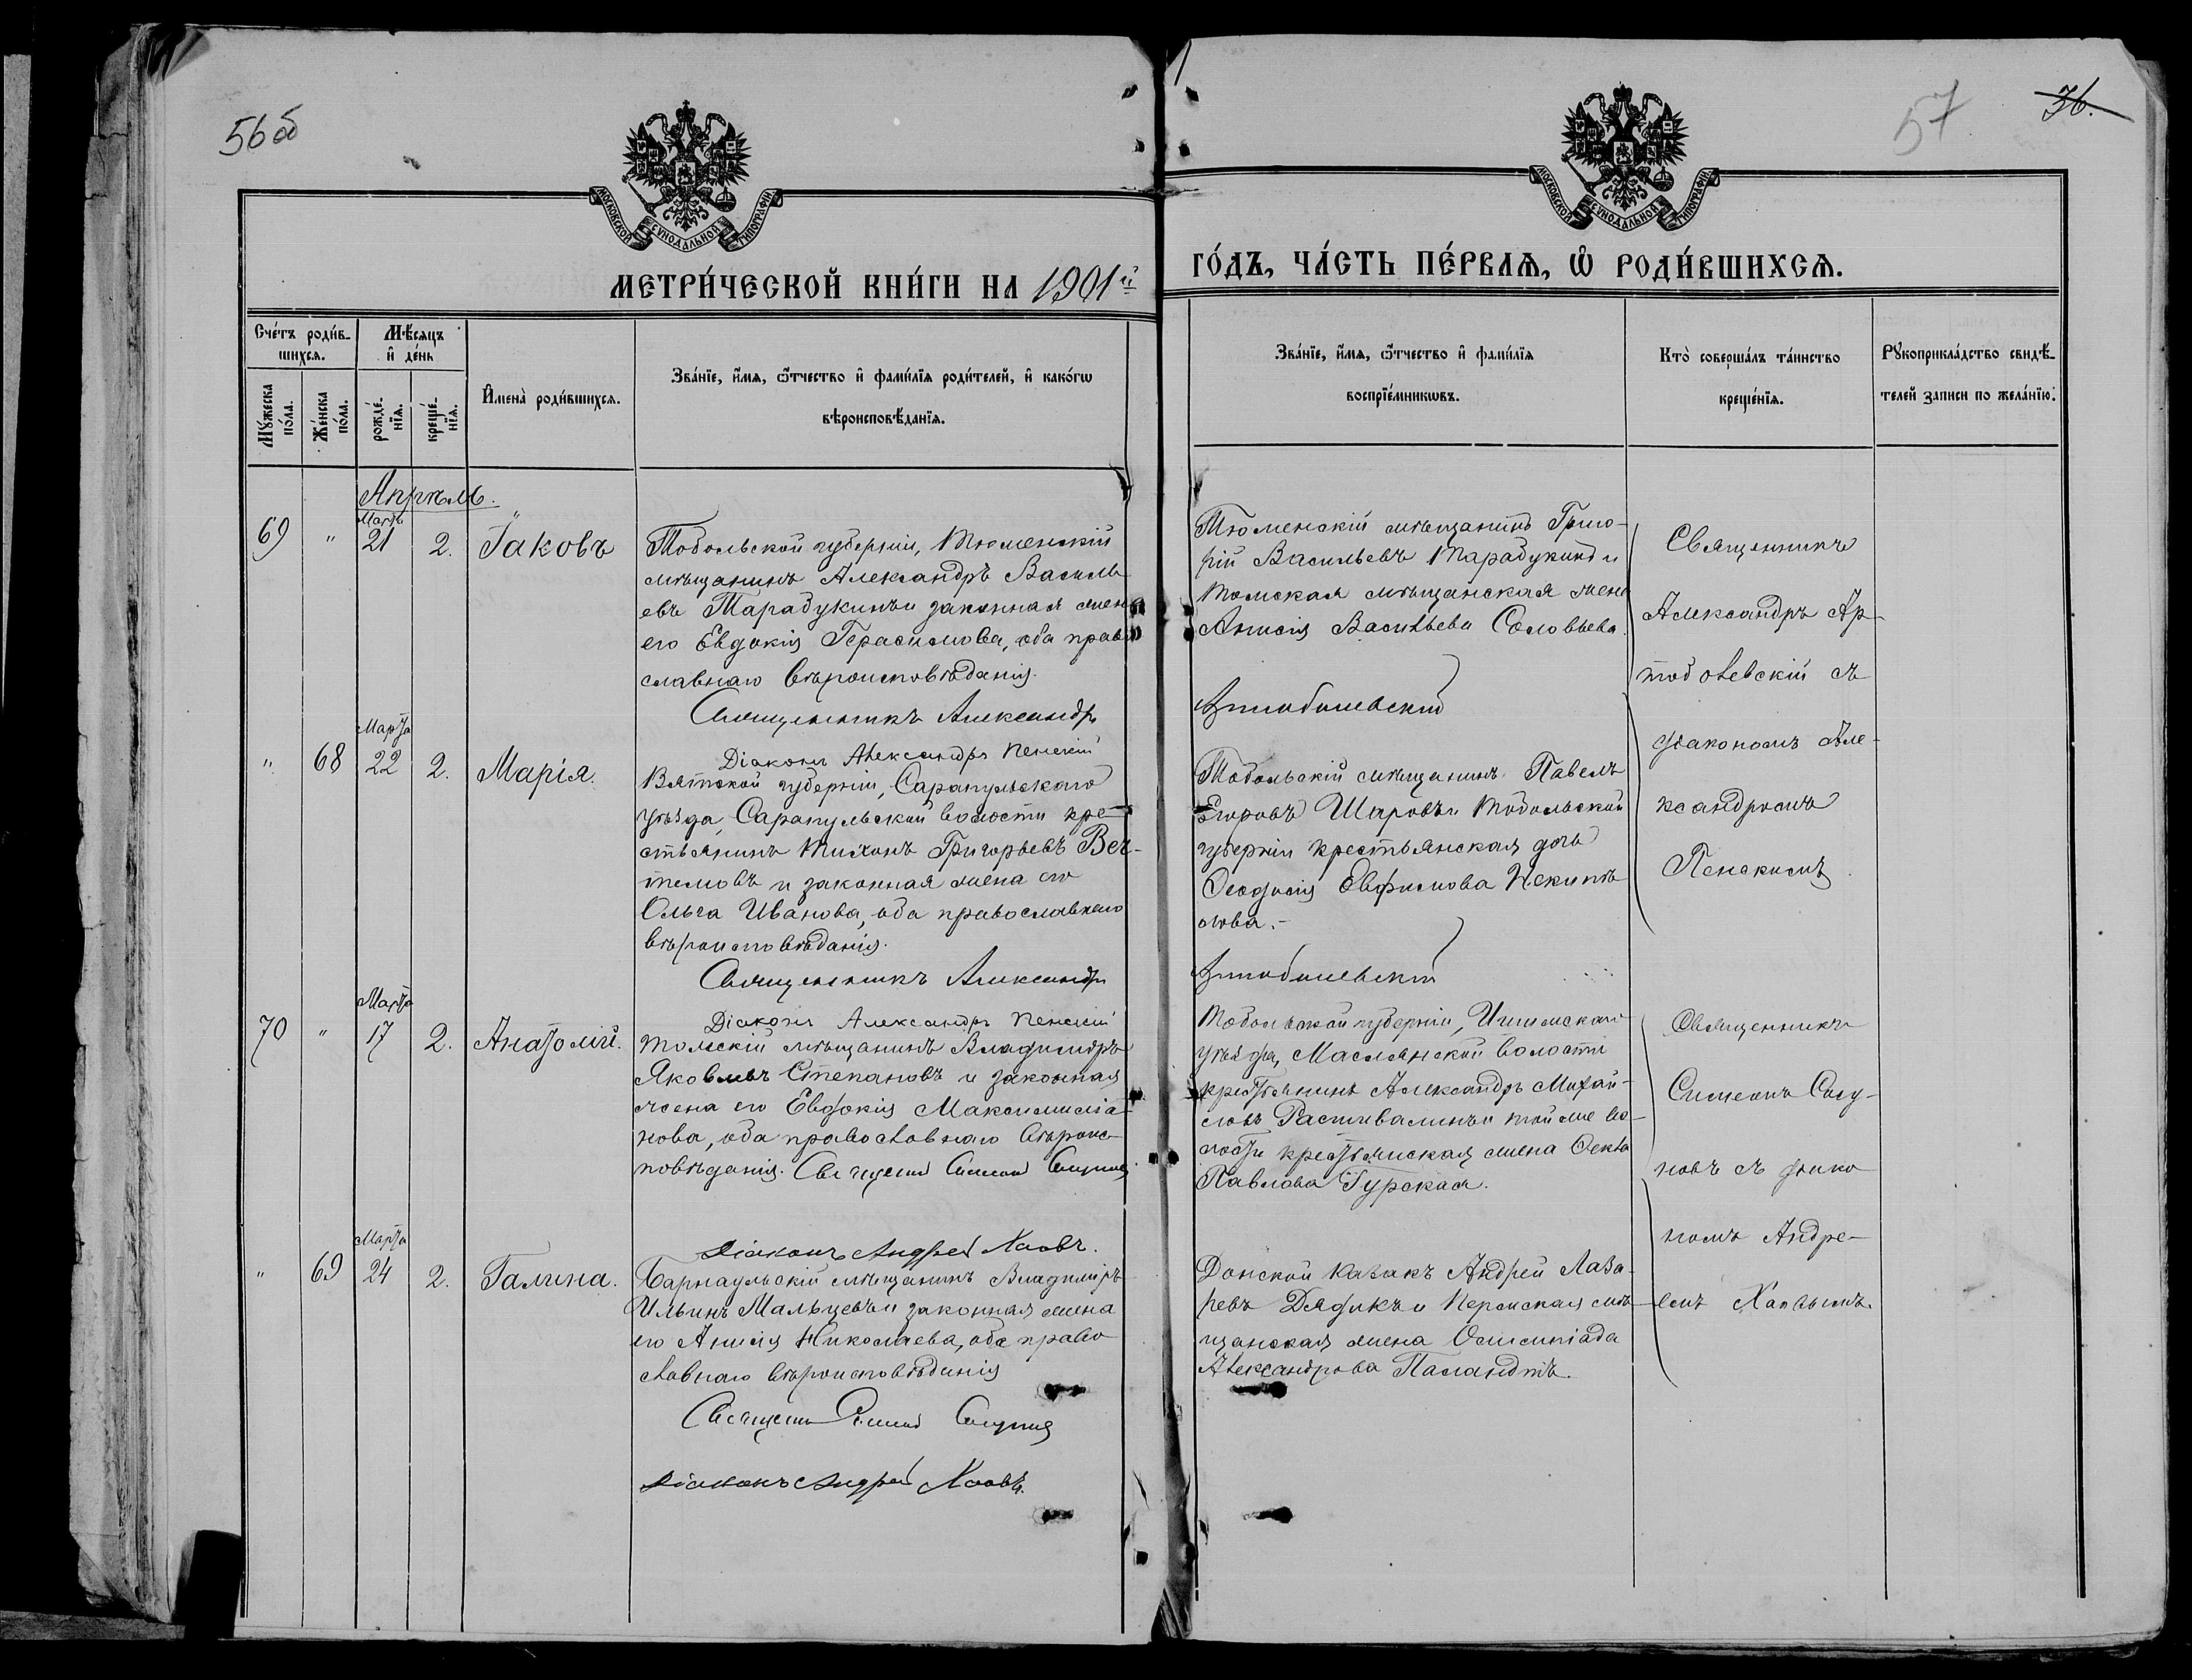 56 об
57
36.
МОСКОВСКОЙ СѴНОДАЛЬНОЙ ТИПОГРАФІИ.
МОСКОВСКОЙ СѴНОДАЛЬНОЙ ТИПОГРАФІИ.
МЕТРИ́ЧЕСКОЙ КНИ́ГИ НА 1901й
ГО́ДЪ, ЧА́СТЬ ПЕ́РВАѦ, Ѡ РОДИ́ВШИХСѦ.
Сче́тъ роди́в-
шихся.
Мѣ́сяцъ
и де́нь
Мꙋжеска по́ла.
Же́нска по́ла.
рожде́нїя.
креще́нїя.
Имена̀ роди́вшихся.
Зва́нїе, и́мя, ѻ҆́тчество и фами́лїя роди́телей, и како́гѡ
вѣроисповѣ́данїя.
Зва́нїе, и́мя, ѻ҆́тчество и фами́лїя
воспрїе́мникѡвъ.
Кто̀ соверша́лъ та́инство
креще́нїя.
Рꙋкоприкла́дство свидѣ́-
телей записи по жела́нїю.
Апрѣль.
69 " Марта 21 2. Іаковъ
Тобольской губерніи, Тюменскій
мѣщанинъ Александръ Василь
евъ Тарабукинъ и законная жена
его Евдокія Герасимова, оба право
славнаго вѣроисповѣданія.
Священникъ Александръ
Діаконъ Александръ Пенскій
Тюменскій мѣщанинъ Григо-
рій Васильевъ Тарабукинъ и
Томская мѣщанская жена
Анисія Васильева Соловьева.
Артоболевскій
Священникъ
Александръ Ар-
тоболевскій съ
діакономъ Але-
ксандромъ
Пенскимъ.
" 68 Марта 22 2. Марія.
Вятской губерніи, Сарапульскаго
уѣзда, Сарапульской волости кре-
стьянинъ Тихонъ Григорьевъ Вех-
темовъ и законная жена его
Ольга Иванова, оба православнаго
вѣроисповѣданія.
Священникъ Александръ
Діаконъ Александръ Пенскій
Тобольскій мѣщанинъ Павелъ
Егоровъ Шаровъ и Тобольской
губерніи крестьянская дочь
Ѳеодосія Евфимова
Артоболевскій
70 " Марта 17 2. Анатолій.
Томскій мѣщанинъ Владиміръ
Яковлевъ Степановъ и законная
жена его Евдокія Максимиліа-
нова, оба православнаго вѣроис-
повѣданія. Священникъ Симеонъ Сосуновъ
Діаконъ Андрей Хаовъ.
Тобольской губерніи, Ишимскаго
уѣзда, Маслянской волости
крестьянинъ Александръ Михай-
ловъ и той же во-
лости крестьянская жена Ѳекла
Павлова Гурская.
Священникъ
Симеонъ Сосу-
новъ съ діако
номъ Андре-
емъ Хаовымъ.
" 69 Марта 24 2. Галина.
Барнаульскій мѣщанинъ Владиміръ
Ильинъ Мальцевъ и законная жена
его Анисія Николаева, оба право
славнаго вѣроисповѣданія
Священникъ Симеонъ Сосуновъ
Діаконъ Андрей Хаовъ.
Донской казакъ Андрей Лаза-
ревъ Дядикъ и Пермская мѣ-
щанская жена Олимпіада
Александрова Паландтъ.